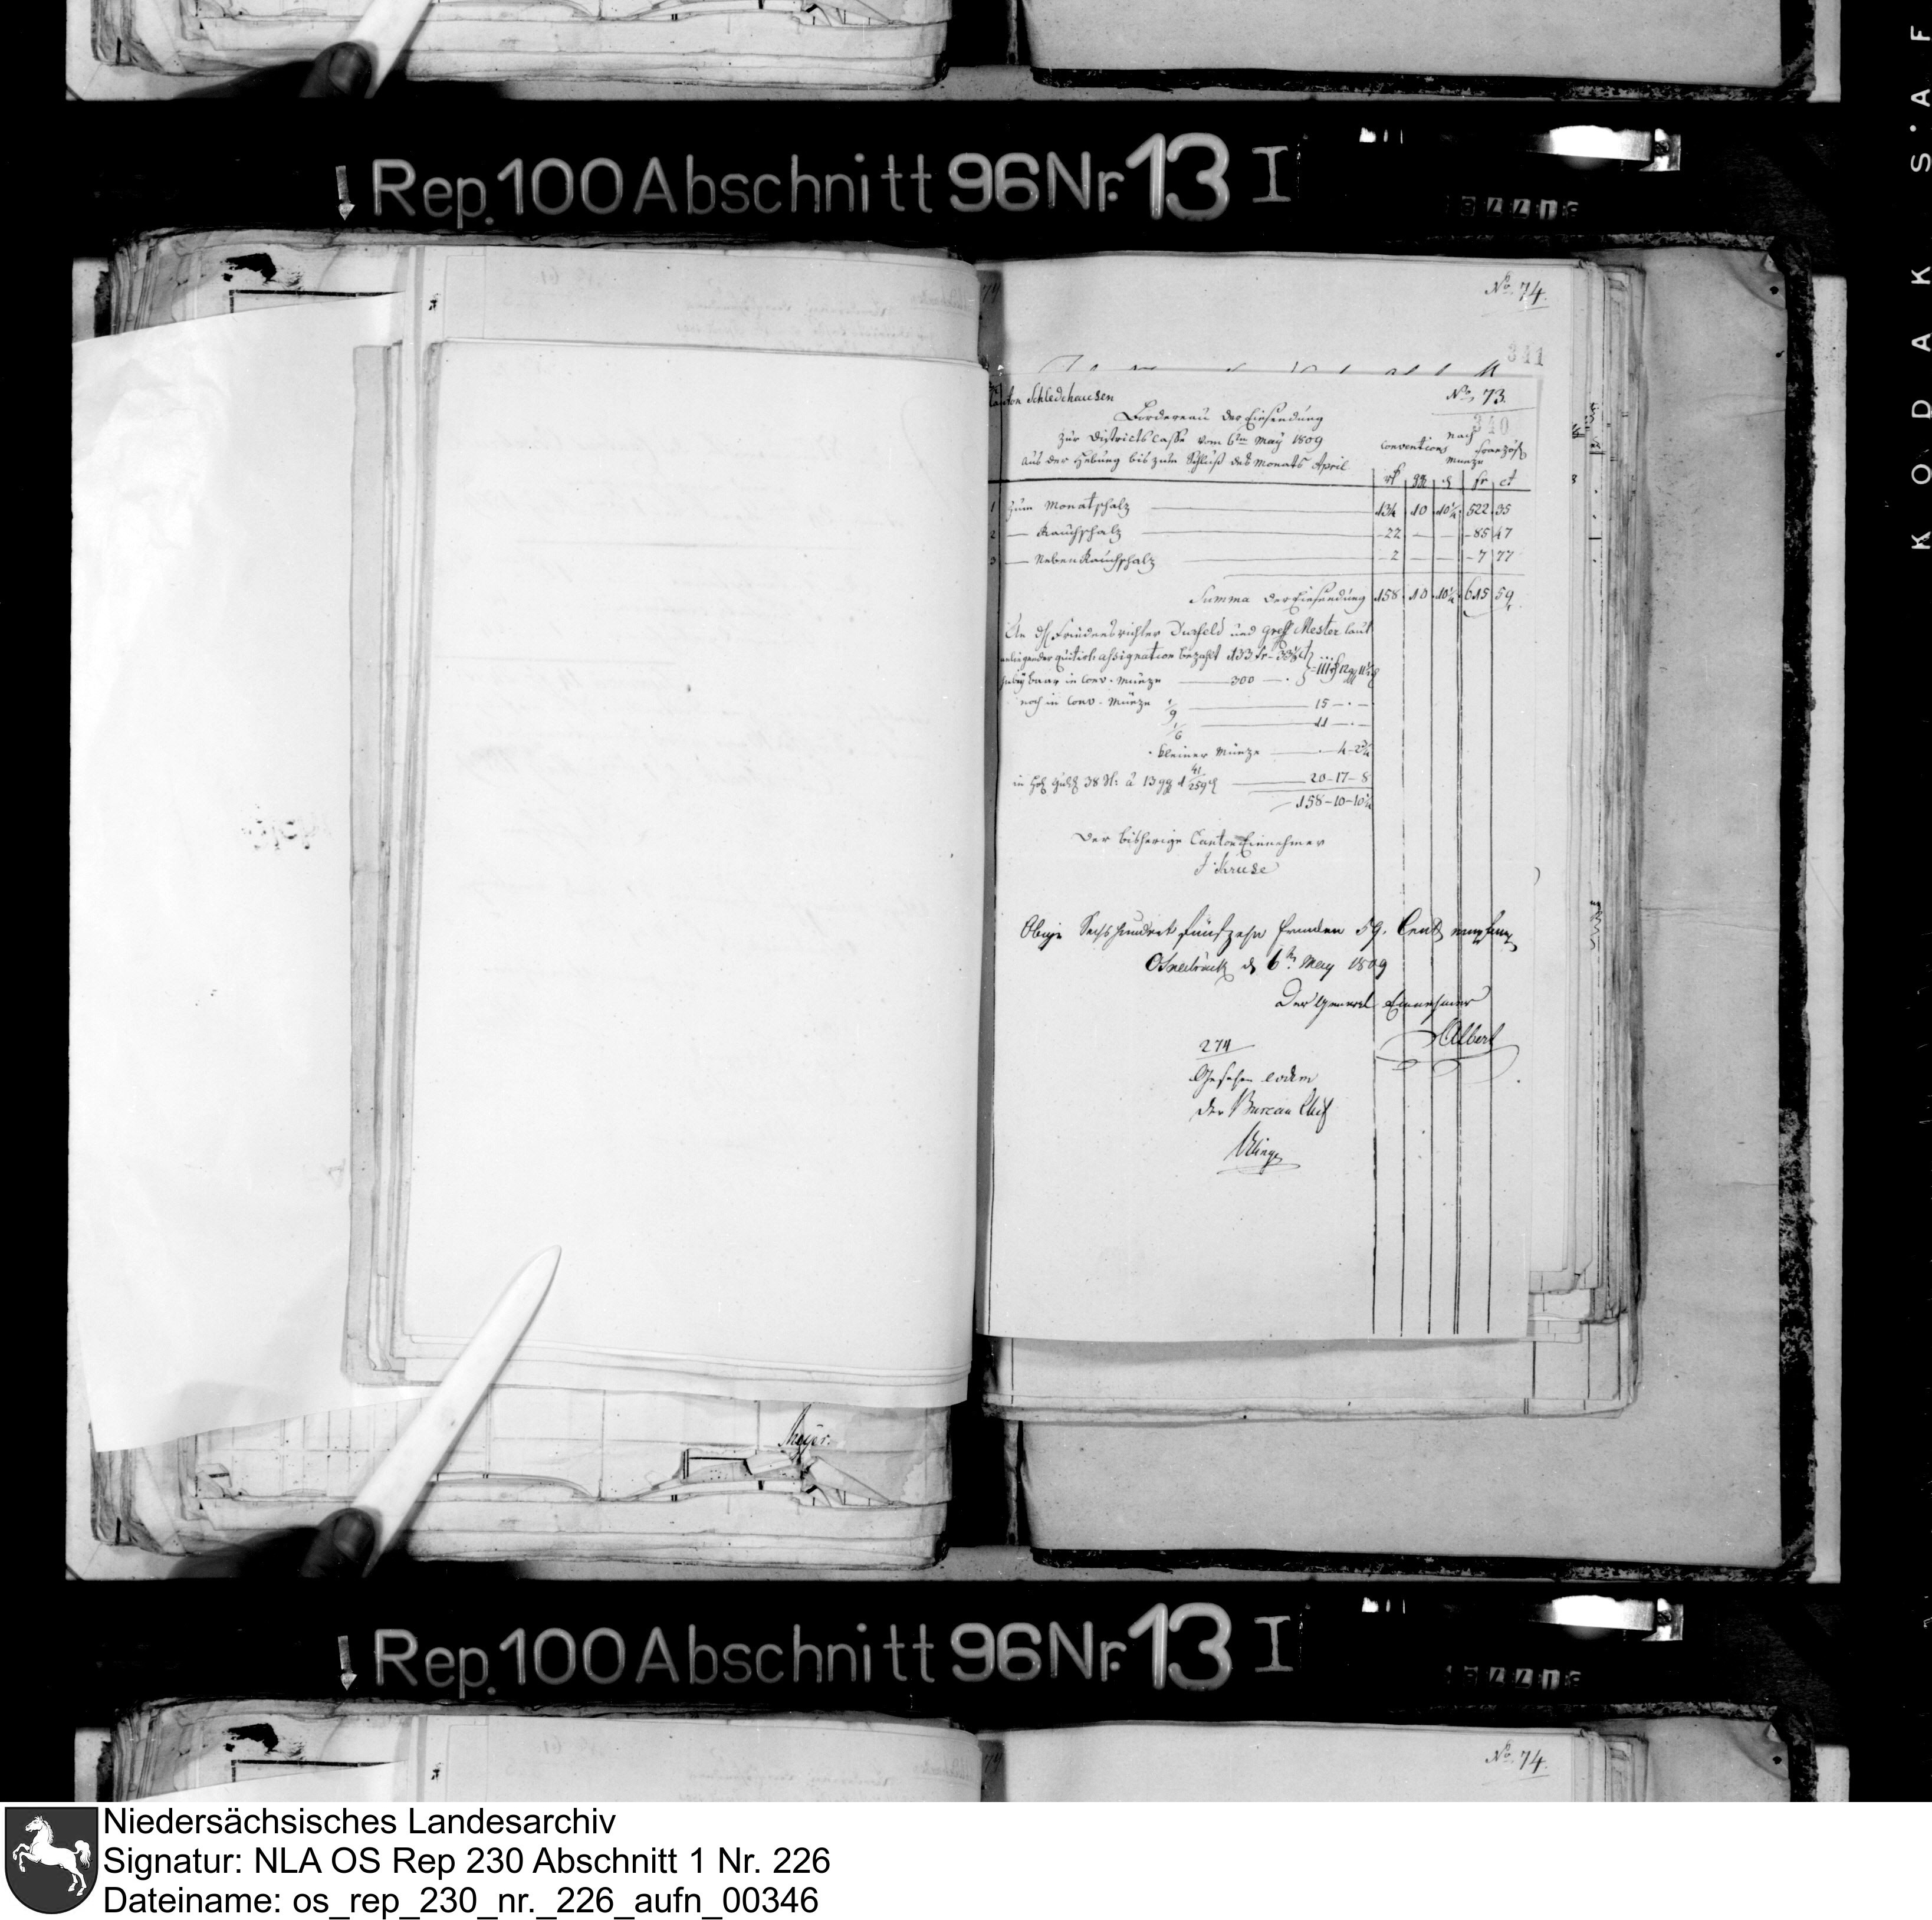 Rep. 100 Abschnitt 96 Nr. 13 I
KODAK S.A.F
No. 74.
341
Canton Schledehausen
No. 73.
340
Bordereau der Einsendung
zur Districts Casse vom 6ten May 1809
aus der Hebung bis zum Schluß des Monats April
nach
Conventions französ
Münze
rt gg d fr ct
1 Zum Monatschatz 134 10 10½ 522 35
2 — Rauchschatz 22 — — 85 47
3 — Neben Rauchschatz 2 — — 7 77
Summa der Einsendung 158 10 10½ 615 59
An Friedensrichter Durfeld und Greff Mester laut
anliegender quitirten assignation bezahlt 133 fr
baar in Conv. Münze 300
noch in Conv. Münze 1/9 15 — . —
1/6 11 — . —
kleiner Münze . 4 - 2¾
in Holl. Guld. 38 St. à 13 gg 1 41/259 d 20 - 17 - 8
158 - 10 - 10½
Der bisherige Canton Einnehmer
J Kruse
Obige Sechshundert fünfzehn Franken 59. Cent empfang
Osnabrück d 6ten May 1809
Der General Einnehmer
Albert
274
Gesehen eodem
der Bureau Chef
Klinge
Meyer.
Rep. 100 Abschnitt 96 Nr. 13 I
No. 74.
Niedersächsisches Landesarchiv
Signatur: NLA OS Rep 230 Abschnitt 1 Nr. 226
Dateiname: os_rep_230_nr._226_aufn_00346